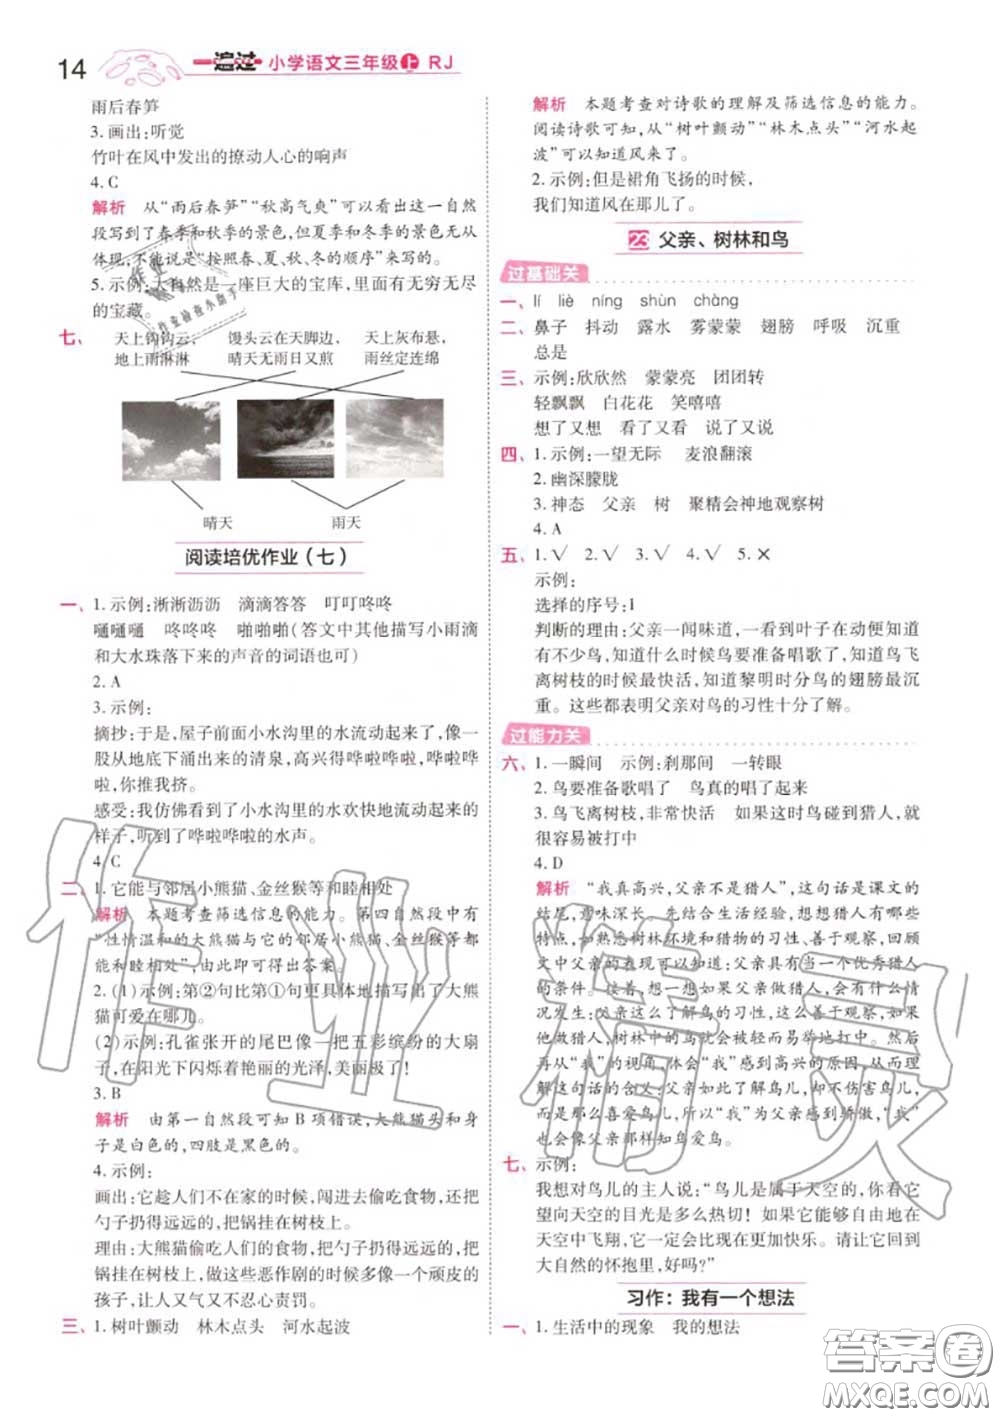 14
一遍过 小学语文三年级上 RJ
雨后春笋
3.画出:听觉
竹叶在风中发出的撩动人心的响声
4.C
解析 从“雨后春笋”“秋高气爽”可以看出这一自然
段写到了春季和秋季的景色,但夏季和冬季的景色没有
体现,不能说是“按照春、夏、秋、冬的顺序”来写的。
5.示例:大自然是一座巨大的宝库,里面有无穷无尽
的宝藏。
七、
天上钩钩云,
地上雨淋淋
馒头云在天脚边,
晴天无雨日又煎
天上灰布悬,
雨丝定连绵
晴天 雨天
阅读培优作业(七)
一、1.示例:淅淅沥沥 滴滴答答 叮叮咚咚
嗵嗵嗵 咚咚咚 啪啪啪(答文中其他描写小雨滴
和大水珠落下来的声音的词语也可)
2.A
3.示例:
摘抄:于是,屋子前面小水沟里的水流动起来了,像一
股从地底下涌出来的清泉,高兴得哗啦哗啦,哗啦哗
啦,你推我挤。
感受:我仿佛看到了小水沟里的水欢快地流动起来的
样子,听到了哗啦哗啦的水声。
4.C
二、1.它能与邻居小熊猫、金丝猴等和睦相处
解析 本题考查筛选信息的能力。第四自然段中
“性情温和的大熊猫与它的邻居小熊猫、金丝猴等都
能和睦相处”,就是需要筛选出的答案。
2.(1)示例:第②句比第①句更具体地描写出了大熊
猫可爱的憨态。
(2)示例:孔雀张开的尾巴像一把五彩缤纷的大扇
子,在阳光下闪烁着艳丽的光泽,美丽极了!
3.B
解析 由第一自然段可知B项错误,大熊猫头和身
子是白色的,四肢是黑色的。
4.示例:
画出:它趁人们不在家的时候,闯进去偷吃食物,还把
勺子扔得远远的,把锅挂在树枝上。
理由:大熊猫偷吃人们的食物,把勺子扔得远远的,把
锅挂在树枝上,说这些恶作剧的时候多像一个顽皮的
孩子,让人又气又不忍心责罚。
三、1.树叶颤动 林木点头 河水起波
解析 本题考查对诗歌的理解及筛选信息的能力。
阅读诗歌可知,从“树叶颤动”“林木点头”“河水起
波”可以知道风来了。
2.示例:但是裙角飞扬的时候,
我们知道风在那儿了。
23 父亲、树林和鸟
过基础关
一、lí liè níng shùn chàng
二、鼻子 抖动 露水 雾蒙蒙 翅膀 呼吸 沉重
总是
三、示例:欣欣然 蒙蒙亮 团团转
轻飘飘 白花花 笑嘻嘻
想了又想 看了又看 说了又说
四、1.示例:一望无际 麦浪翻滚
2.幽深朦胧
3.神态 父亲 树 聚精会神地观察树
4.A
五、1.√ 2.√ 3.√ 4.√ 5.×
示例:
选择的序号:1
判断的理由:父亲一闻味道,一看到叶子在动便知道
有不少鸟,知道什么时候鸟要准备唱歌了,知道鸟飞
离树枝的时候最快活,知道黎明时分鸟的翅膀最沉
重。这些都表明父亲对鸟的习性十分了解。
过能力关
六、1.一瞬间 示例:刹那间 一转眼
2.鸟要准备歌唱了 鸟真的唱了起来
3.鸟飞离树枝,非常快活 如果这时鸟碰到猎人,就
很容易被打中
4.D
解析 “我真高兴,父亲不是猎人”,这句话是课文的
结尾,意味深长。先结合生活经验,想想猎人有哪些
特点,如熟悉树林环境和猎物的习性、善于观察,回顾
文中父亲的表现可以知道:父亲具有当一个优秀猎人
的条件。接着想一想如果父亲做猎人,会有什么情况
发生:父亲这么了解鸟的习性,这么善于观察,如果
他做猎人,树林中的鸟就会被轻而易举地打中。然后
再从“我”的视角,体会“我”感到高兴的原因,从而理
解这句话的含义:父亲如此了解鸟儿,却不伤害鸟儿,
而是那么喜爱鸟儿,所以“我”为父亲感到骄傲,“我”
也会像父亲那样知鸟爱鸟。
七、示例:
我想对鸟儿的主人说:“鸟儿是属于天空的,你看它
望向天空的目光是多么热切!如果能够自由地在
天空中飞翔,它一定会比现在更加快乐。请让它回到
大自然的怀抱里,好吗?”
习作:我有一个想法
一、1.生活中的现象 我的想法
作业精灵
答案圈
MXQE.COM